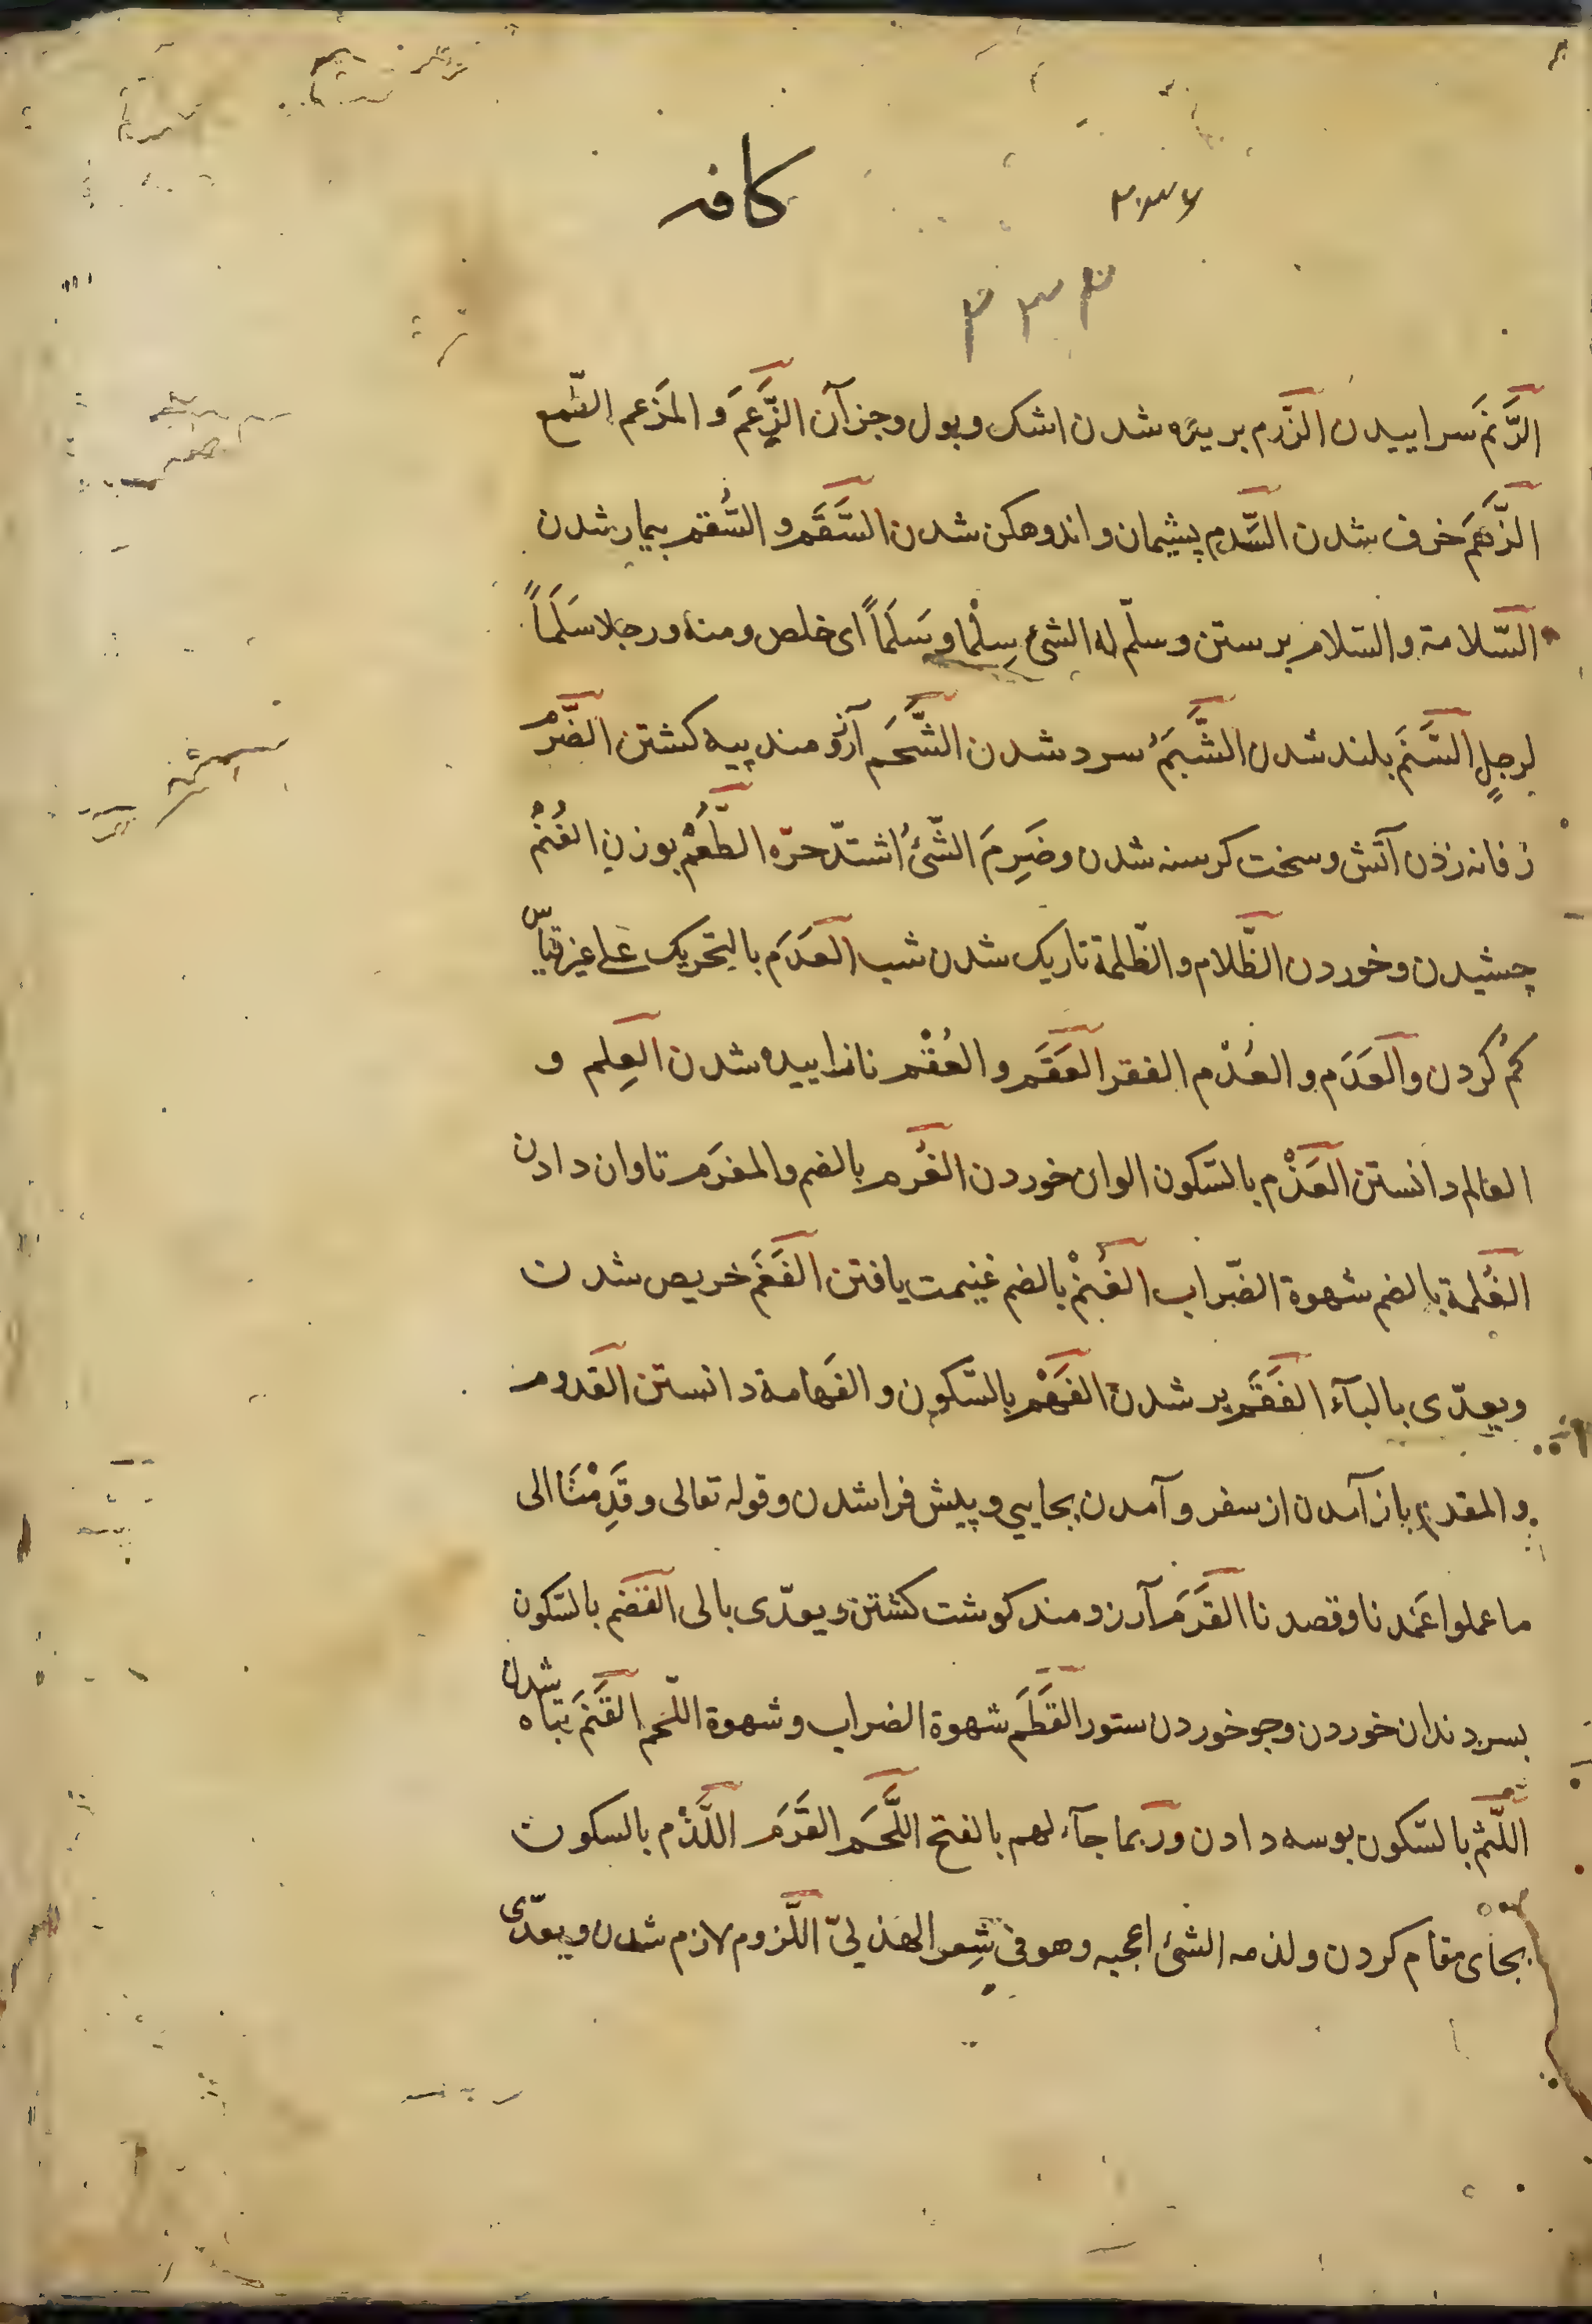 کافه
۲۳۶
۲۳۲
الرَّنَمَ سراییدن الزّرم بریده شدن اشک وبول وجز آن الزَّعَمَ و المَزعم الطّمع
الزَّهَمَ خرف شدن السَّدم پشیمان واندوهکن شدن السَّقَم و السُّقم بیمار شدن
السّلامة والسّلام برستن وسلّم له الشئ سِلْما وسَلَماً ای خلص ومنه ورجلا سَلَماً
لرجلٍ السَّنَمَ بلند شدن الشَّبَمُ سرد شدن الشَّحَم آرزومند پیه کشتن الضَّرَم
زفانه زذن آتش وسخت کرسنه شدن وضَرِمَ الشّئُ اشتدّ حرّه الطُّعْم بوزنِ الغُنْم
چشیدن وخوردن الظّلام والظّلمة تاریک شدن شب العَدَم بالتحریک علی غیر قیاس
کُم کردن والعَدَم والعُدْم الفقر العَقَم والعُقْم نازاییده شدن العِلم و
العالم دانستن العَذْم بالسّکون الوان خوردن الغُرم بالضم والمغرَم تاوان دادن
الغُلمة بالضم شهوة الضّراب الغُنْم بالضم غنیمت یافتن الفَغَم خریص شدن
ویعدّی بالبآء الفَقَم پر شدن الفَهْم بالسّکون والفَهامة دانستن القدوم
والمقدم باز آمدن از سفر و آمدن بجایی وپیش فراشدن وقوله تعالی وقَدِمْنَا الی
ما عملوا عَمَدنا وقصدنا القَرَمَ آرزومند کوشت کشتن ویعدّی بالی القضم بالسّکون
بسر دندان خوردن وجو خوردن ستور القَطَم شهوة الضراب وشهوة اللّحم القَنَم تباه شدن
اللّثم بالسّکون بوسه دادن وربما جآء لهم بالفتح اللَّحَم القَرَم اللَّذْم بالسکون
بجای مقام کردن ولذمه الشئ اعجبه وهو فی شِعر الهذلیّ اللّزوم لازم شدن ویعدّی